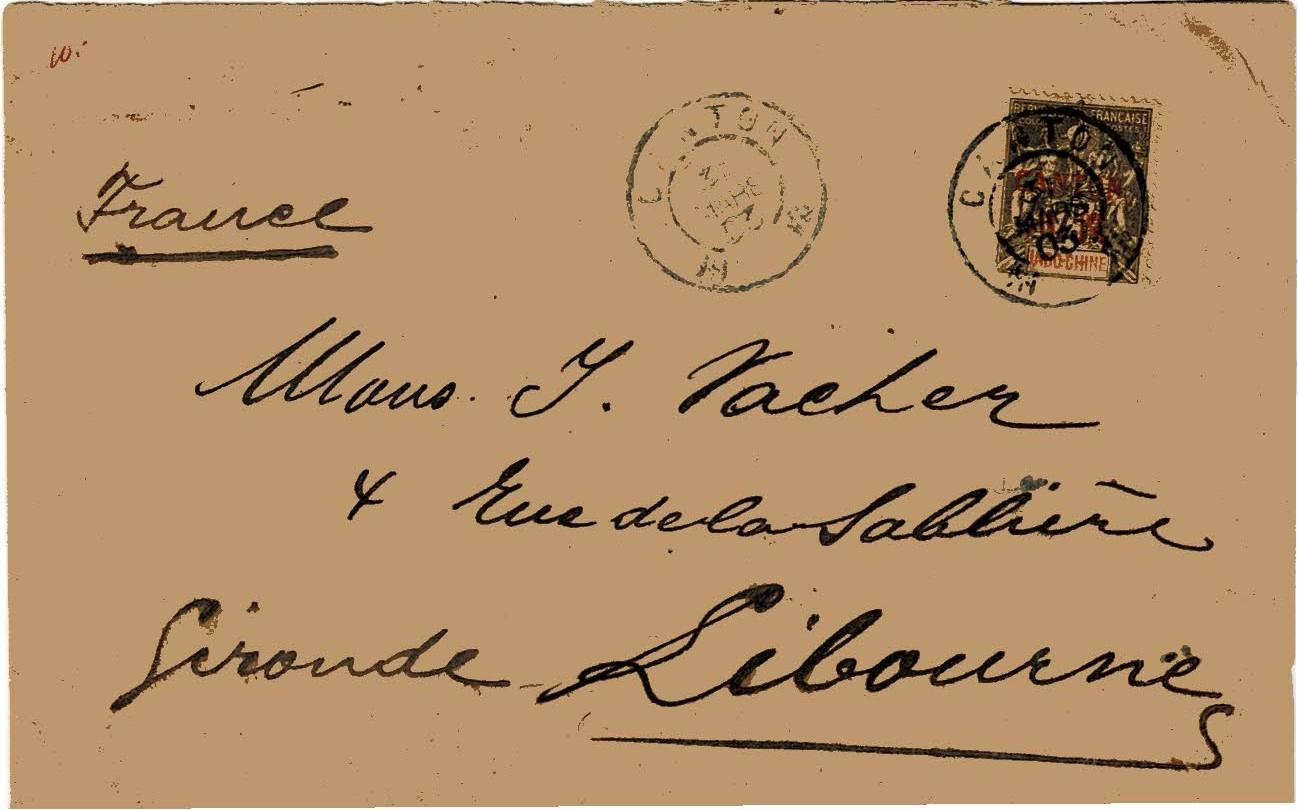 10.-
CANTON
CANTON
MARS
05
REPUBLIQUE FRANÇAISE
COLONIES POSTES
CANTON
INDO-CHINE
France
Mons. J. Vacher
4 Rue de la Sablière
Gironde Libourne